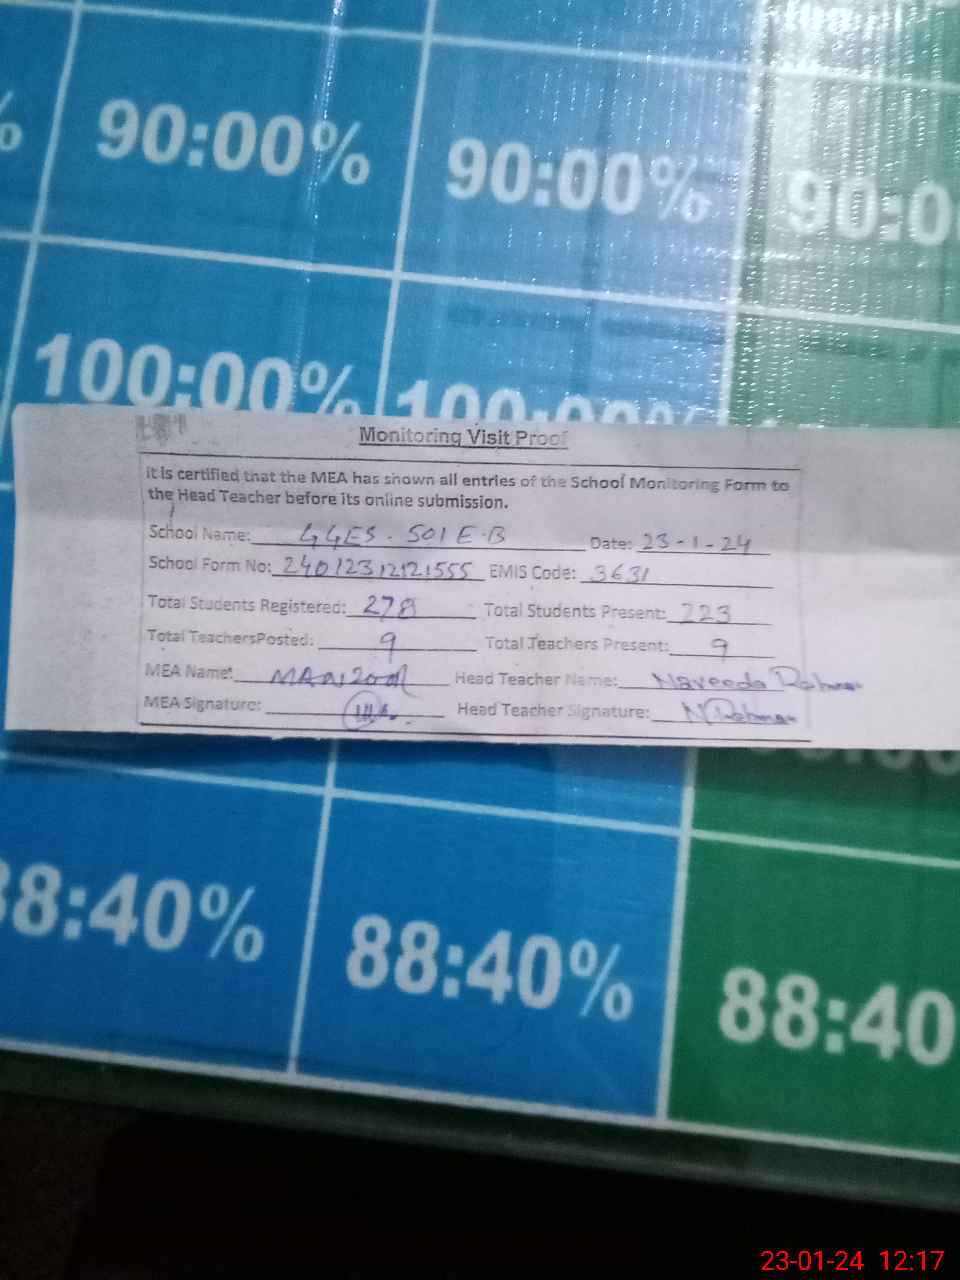 %
90:00%
90:00%
90:0
100:00%
100:00%
Monitoring Visit Proof
it is certified that the MEA has shown all entries of the School Monitoring Form to
the Head Teacher before its online submission.
School Name: GGES. 501 E-B Date: 23-1-24
School Form No: 24012312121555 EMIS Code: 3631
Total Students Registered: 278 Total Students Present: 223
Total TeachersPosted: 9 Total Teachers Present: 9
MEA Name: Head Teacher Name: Naveeda Rahman
MEA Signature: Head Teacher Signature: N Rahman
88:40%
88:40%
88:40
23-01-24 12:17